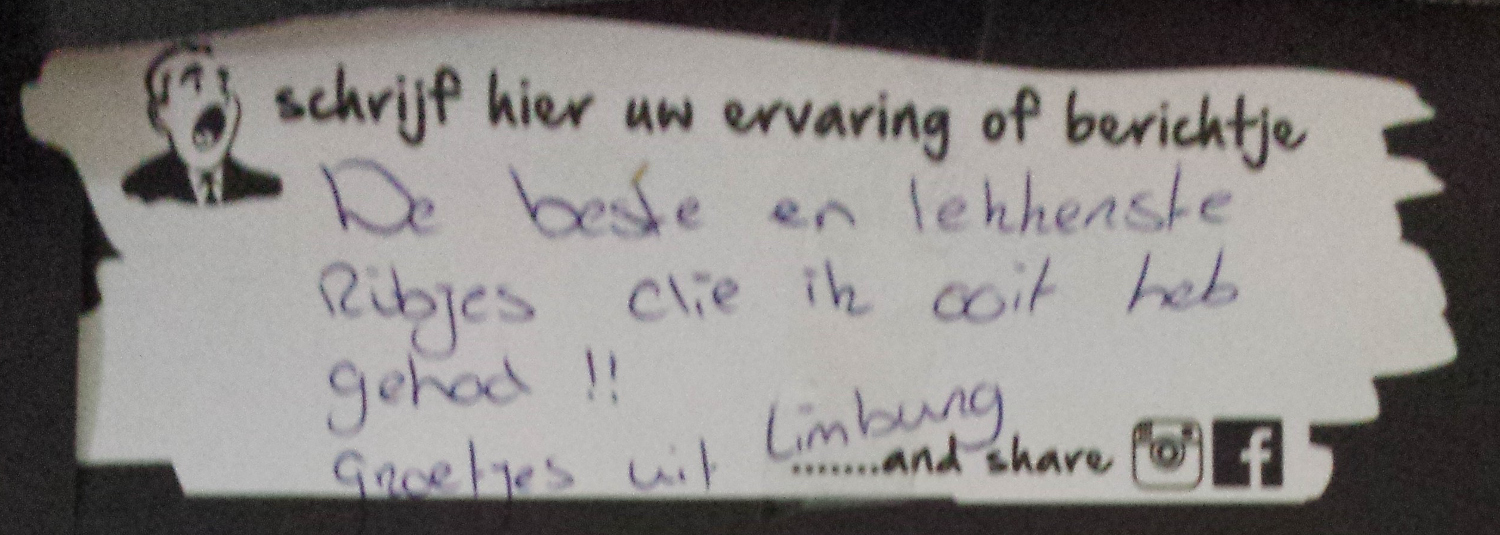 schrijf hier uw ervaring of berichtje
De beste en lekkerste
Ribjes die ik ooit heb
gehad !!
Groetjes uit Limburg
.......and share